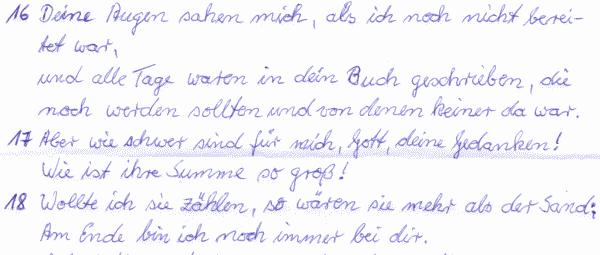 16 Deine Augen sahen mich, als ich noch nicht berei-
tet war,
und alle Tage waren in dein Buch geschrieben, die
noch werden sollten und von denen keiner da war.
17 Aber wie schwer sind für mich, Gott, deine Gedanken!
Wie ist ihre Summe so groß!
18 Wollte ich sie zählen, so wären sie mehr als der Sand:
Am Ende bin ich noch immer bei dir.